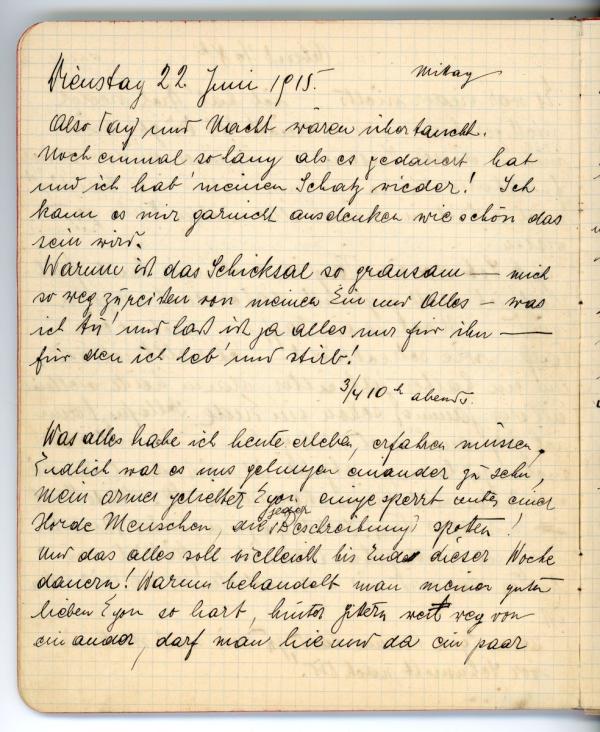 Dienstag 22 Juni 1915. Mittag
Also Tag und Nacht wären übertaucht.
Noch einmal so lang als es gedauert hat
und ich hab' meinen Schatz wieder! Ich
kann es mir garnicht ausdenken wie schön das
sein wird.
Warum ist das Schicksal so grausam — mich
so weg zu reisen von meinen Ein und Alles – was
ich tu' und lass ist ja alles nur für ihn —
für den ich leb' und stirb!
3/4 10 h abends.
Was alles habe ich heute erleben, erfahren müssen,
Endlich war es uns gelungen einander zu sehn,
mein armer geliebter Egon, eingesperrt unter einer
Horde Menschen, die jeder Beschreibung spotten!
Und das alles soll vielleicht bis Ende dieser Woche
dauern! Warum behandelt man meinen guten
lieben Egon so hart, hinter gittern weit weg von
einander, darf man hie und da ein paar